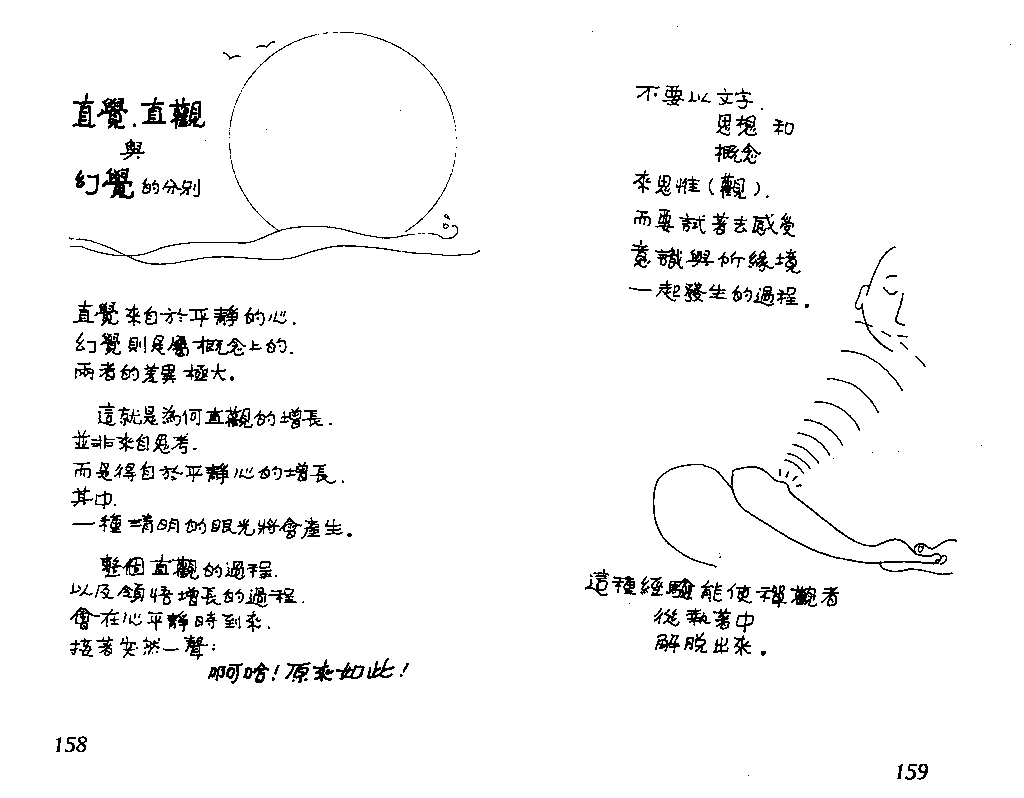 直覺.直觀
與
幻覺的分別
直覺來自於平靜的心.
幻覺則是屬概念上的.
兩者的差異極大。
這就是為何直觀的增長.
並非來自思考.
而是得自於平靜心的增長.
其中.
一種清明的眼光將會產生。
整個直觀的過程.
以及領悟增長的過程.
會在心平靜時到來.
接著突然一聲:
啊哈!原來如此!
158
不要以文字.
思想 和
概念
來思惟(觀).
而要試著去感受
意識與所緣境
一起發生的過程。
這種經驗能使禪觀者
從執著中
解脫出來。
159